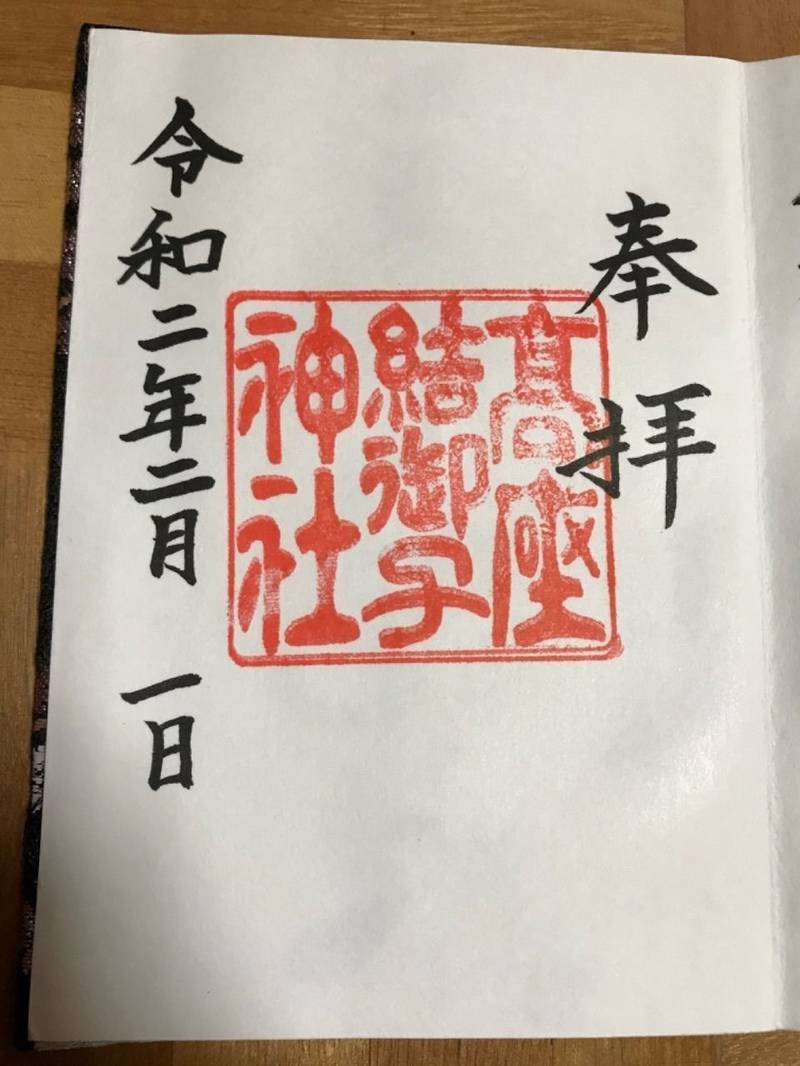 奉拝
髙座
結御子
神社
令和二年二月 一日